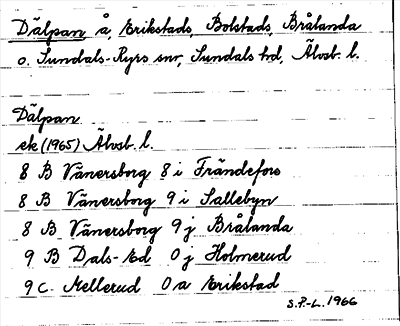 Dälpan, å, Erikstads, Bolstads, Brålanda
o. Sundals-Ryrs snr, Sundals hd, Älvsb. l.
Dälpan
ek (1965) Älvsb. l.
8 B Vänersborg 8 i Frändefors
8 B Vänersborg 9 i Sallebyn
8 B Vänersborg 9 j Brålanda
9 B Dals-Ed 0 j Holmerud
9 C. Mellerud 0 a Erikstad
S.P-L. 1966